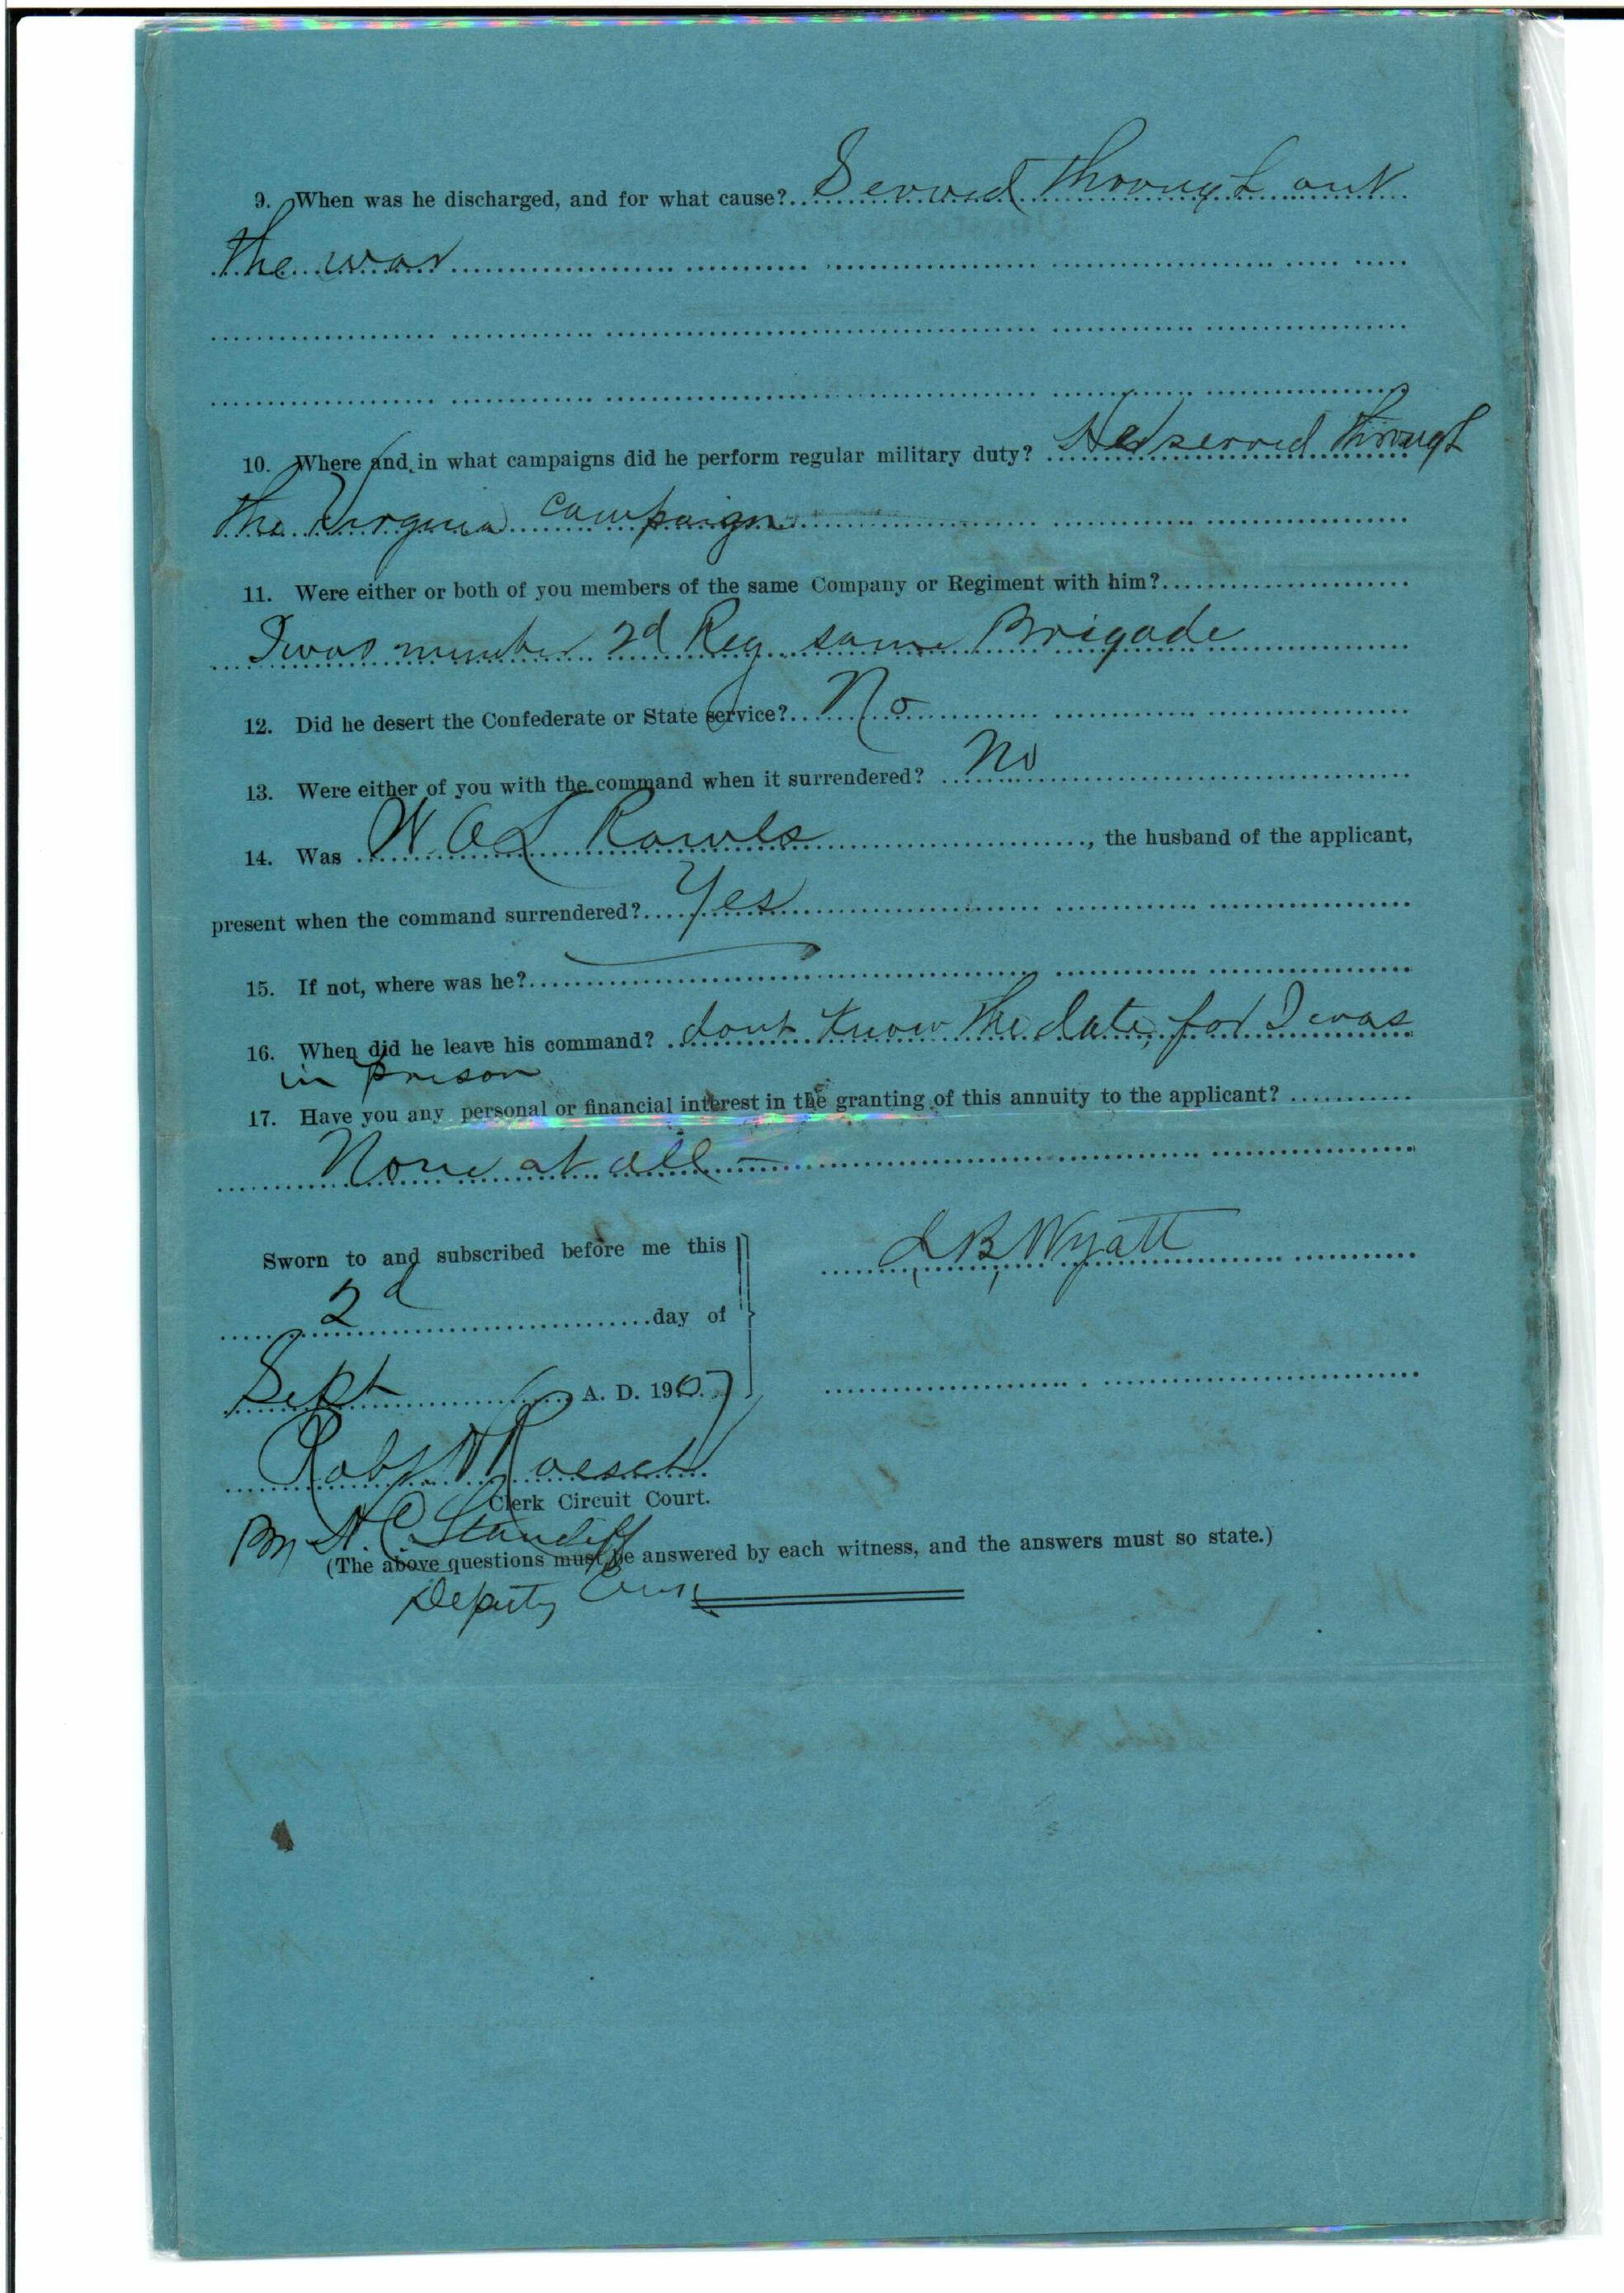 9. When was he discharged, and for what cause? Served through out
the war
10. Where and in what campaigns did he perform regular military duty? He served through
the Virginia campaign
11. Were either or both of you members of the same Company or Regiment with him?
I was member 2d Reg same Brigade
12. Did he desert the Confederate or State service? No
13. Were either of you with the command when it surrendered? No
14. Was W. A. L. Rawls, the husband of the applicant,
present when the command surrendered? Yes
15. If not, where was he?
16. When did he leave his command? dont know the date, for I was
in prison
17. Have you any personal or financial interest in the granting of this annuity to the applicant?
None at all —
Sworn to and subscribed before me this
L B Wyatt
2d day of
Sept A. D. 1907
Robt Roesch
Clerk Circuit Court.
N. C. Standiff
(The above questions must be answered by each witness, and the answers must so state.)
Deputy Clerk